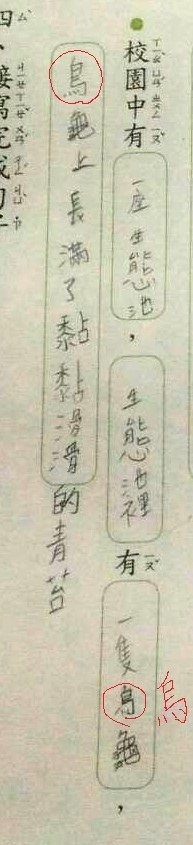 校園中有一座生態池,生態池裡有一隻鳥龜,
烏
鳥龜上長滿了黏黏滑滑的青苔
四、接寫完成句子